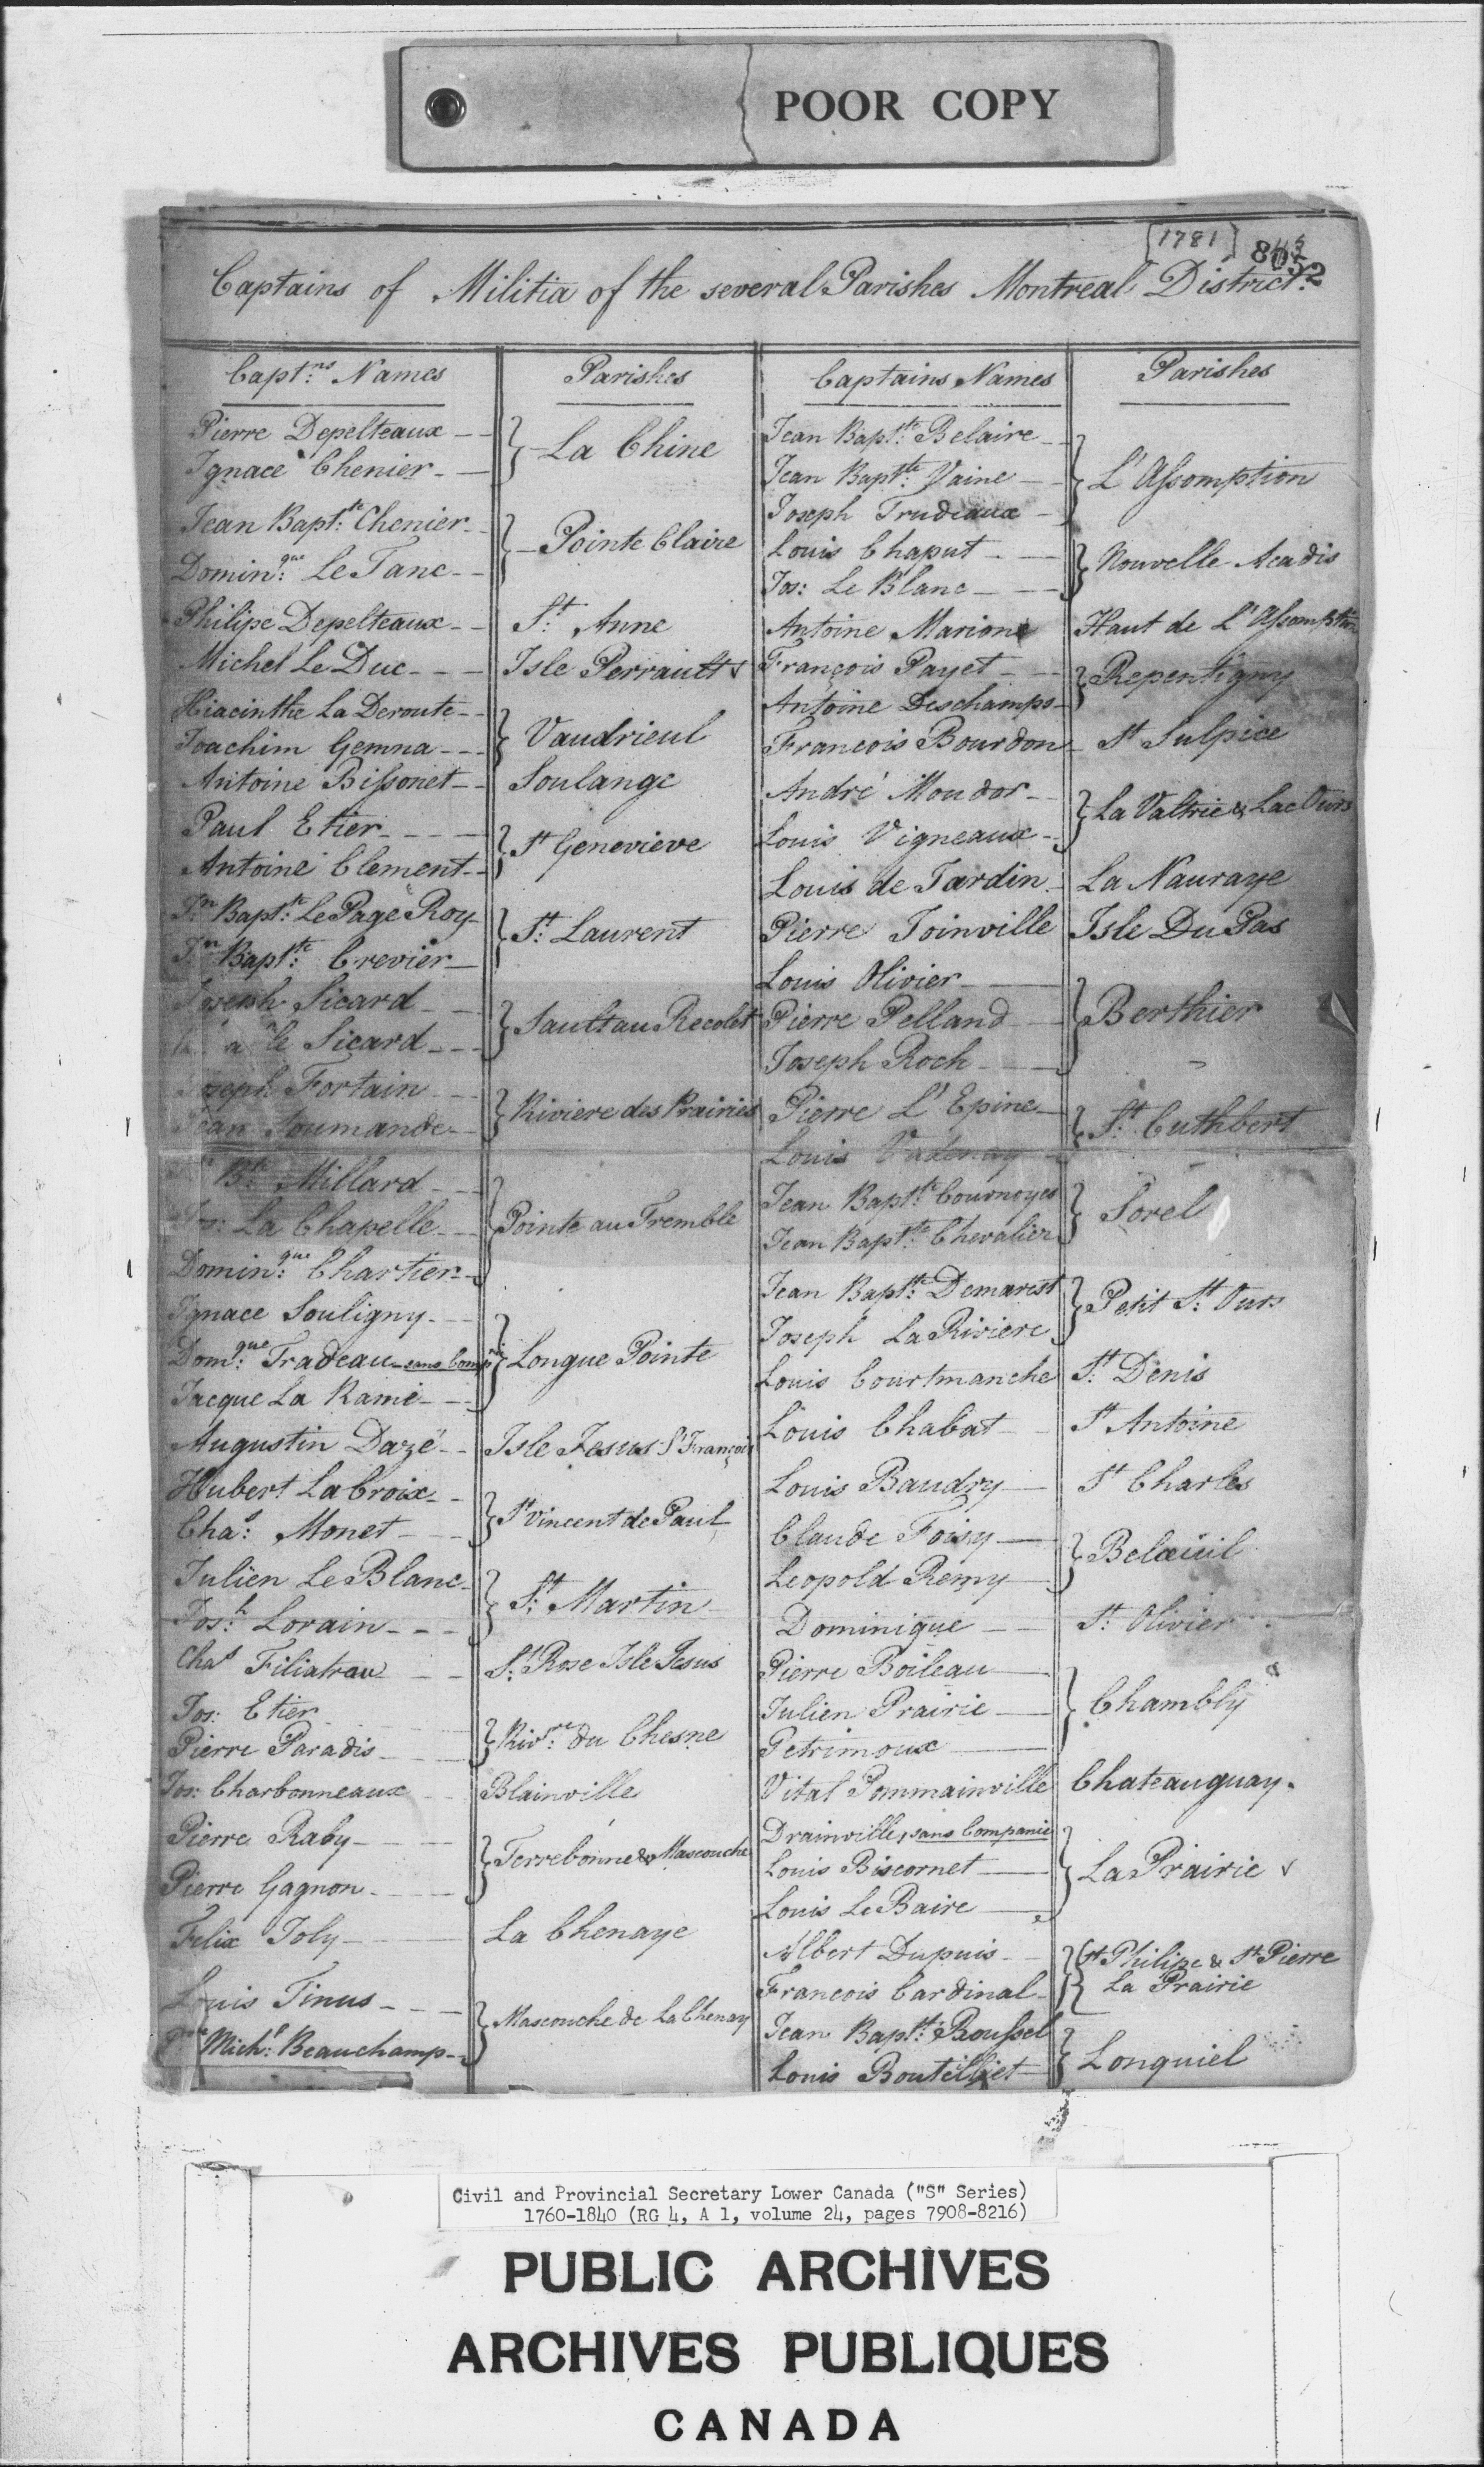 POOR COPY
[1781]
Captains of Militia of the several Parishes Montreal District.
Capt:ns Names
Parishes
Pierre Depelteaux
Ignace Chenier
} La Chine
Jean Bapt:te Chenier
Domin:que Le Tanc
} Pointe Claire
Philipe Depelteaux
St: Anne
Michel Le Duc
Isle Perrault
Hiacinthe La Deroute
Joachim Gemna
} Vaudrieul
Antoine Bissonet
Soulange
Paul Etier
Antoine Clement
} St Genevieve
Jn Bapt:te Le Page Roy
Jn Bapt:te Crevier
} St: Laurent
Joseph Sicard
Sicard
} Sault au Recolet
Joseph Fortain
Jean Soumande
} Riviere des Prairies
Bte Millard
Jos: La Chapelle
Domin:que Chartier
} Pointe au Tremble
Ignace Souligny
Dom:que Tradeau sans Comp
Jacque La Ramé
} Longue Pointe
Augustin Dazé
Isle Jesus St François
Hubert La Croix
Chas: Monet
} St Vincent de Paul
Julien Le Blanc
Jos:h Lorain
} St: Martin
Chas Filiatrau
St: Rose Isle Jesus
Jos: Etier
Pierre Paradis
} Riv:re du Chesne
Jos: Charbonneaux
Blainville
Pierre Raby
Pierre Gagnon
} Terrebonne & Mascouche
Felix Joly
La Chenaye
Louis Tinus
Mich:l Beauchamp
} Mascouche de La Chenay
Captains Names
Parishes
Jean Bapt:te Belaire
Jean Bapt:te Vaine
Joseph Trudeaux
} L'Assomption
Louis Chaput
Jos: Le Blanc
} Nouvelle Acadis
Antoine Marione
Haut de L'Assomption
François Payet
Antoine Deschamps
} Repentigny
Francois Bourdon
St Sulpice
André Moudor
Louis Vigneaux
} La Valtrie & Lac Ours
Louis de Jardin
La Nauraye
Pierre Joinville
Isle Du Pas
Louis Olivier
Pierre Pelland
Joseph Roch
} Berthier
Pierre L'Epine
Louis Vadenay
} St: Cuthbert
Jean Bapt:te Cournoyer
Jean Bapt:te Chevalier
} Sorel
Jean Bapt:te Demarest
Joseph La Riviere
} Petit St: Ours
Louis Courtmanche
St: Denis
Louis Chabat
St Antoine
Louis Baudry
St Charles
Claude Foisy
Leopold Remy
} Belœuil
Dominique
St: Olivier
Pierre Boileau
Julien Prairie
Petrimoux
} Chambly
Vital Pommainville
Chateauguay.
Drainville, sans Companie
Louis Biscornet
Louis Le Baire
} La Prairie
Albert Dupuis
Francois Cardinal
} St Philipe & St Pierre
La Prairie
Jean Bapt:te Roussel
Louis Boutelliet
} Longuiel
Civil and Provincial Secretary Lower Canada ("S" Series)
1760-1840 (RG 4, A 1, volume 24, pages 7908-8216)
PUBLIC ARCHIVES
ARCHIVES PUBLIQUES
CANADA